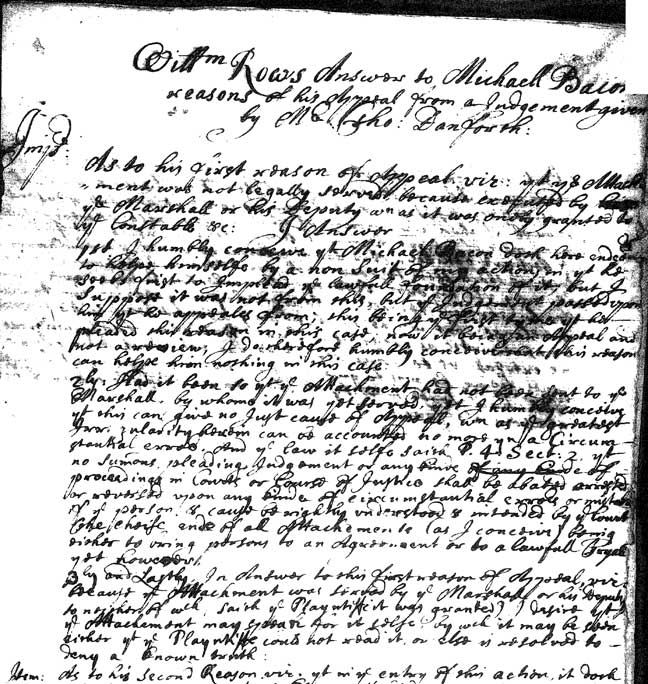 Willm Rows Answer to Michaell Bacon
reasons of his Appeal from a Judgement given
by Mr Tho: Danforth:
Imps:
As to his first reason of Appeal viz: yt ye Attach
-ment was not legally served because executed by
ye Marshall or his Deputy wn as it was onely granted to
ye Constable &c: I Answer
yt I humbly conceive yt Michaell Bacon doth here endea
to helpe himselfe by a non suit of my action, in yt he
seeks first to Implead ye lawfull foundation of it, but I
suppose it was not from this, but ye Judgement passed upon
him yt he appeales from; this being ye first time yt he
pleaded this reason in this case, now it being an Appeal and
not a review, I do therefore humbly conceive that this reason
can helpe him nothing in this case
2ly. Had it been so yt ye Attachment had not been sent to ye
Marshall, by whome it was yet served yet I humbly conceive
yt this can give no Just cause of Appeal, wn as ye greatest
Irregularity herein can be accounted no more yn a Circum-
stantial errour And ye law it selfe saith P. 4. Sect: 2. yt
no Sumons, pleading Judgement or any kinde of
proceeding in Courts or Course of Justice shall be abated arrested
or reversed upon any kinde of circumstantial errors or mistakes
if ye person & cause be rightly understood & intended by ye Court
The cheife ende of all Attachements (as I conceive) being
either to bring persons to an Agreement or to a lawfull Tryall
yet however.
3ly and Lastly. In Answer to this first reason of Appeal, viz.
because ye Attachment was served by ye Marshall or his Deputy
to neither of wch, saith ye Playntiffe it was granted) I desire yt
ye Attachement may speak for it selfe, by wch it may be seen
either yt ye Playntiffe could not read it, or else is resolved to -
deny a known truth:
Item: As to his second Reason viz: yt in ye entry of this action, it doth